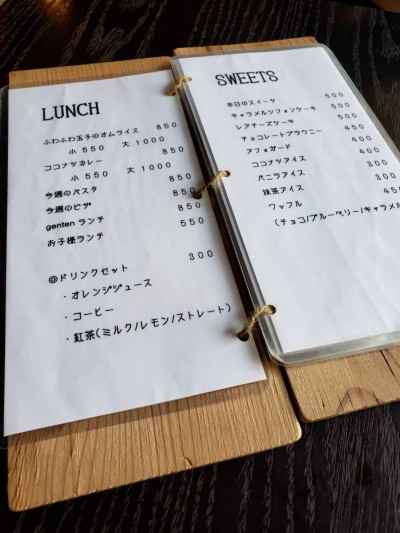 LUNCH
ふわふわ玉子のオムライス 850
小 550 大 1000
ココナツカレー 850
小 550 大 1000
今週のパスタ 850
今週のピザ 850
genten ランチ 850
お子様ランチ 550
◎ドリンクセット 300
・オレンジジュース
・コーヒー
・紅茶(ミルク/レモン/ストレート)
SWEETS
本日のスイーツ 500
キャラメルシフォンケーキ 500
レアチーズケーキ 500
チョコレートブラウニー 450
アフォガード 400
ココナツアイス 300
バニラアイス 300
抹茶アイス 300
ワッフル 450
(チョコ/ブルーベリー/キャラメル